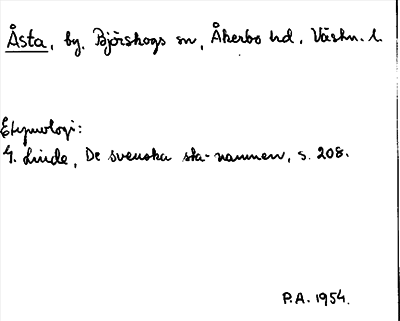 Åsta, by, Björskogs sn, Åkerbo hd, Västm. l.
Etymologi:
G. Linde, De svenska sta-namnen, s. 208.
P.A. 1954.